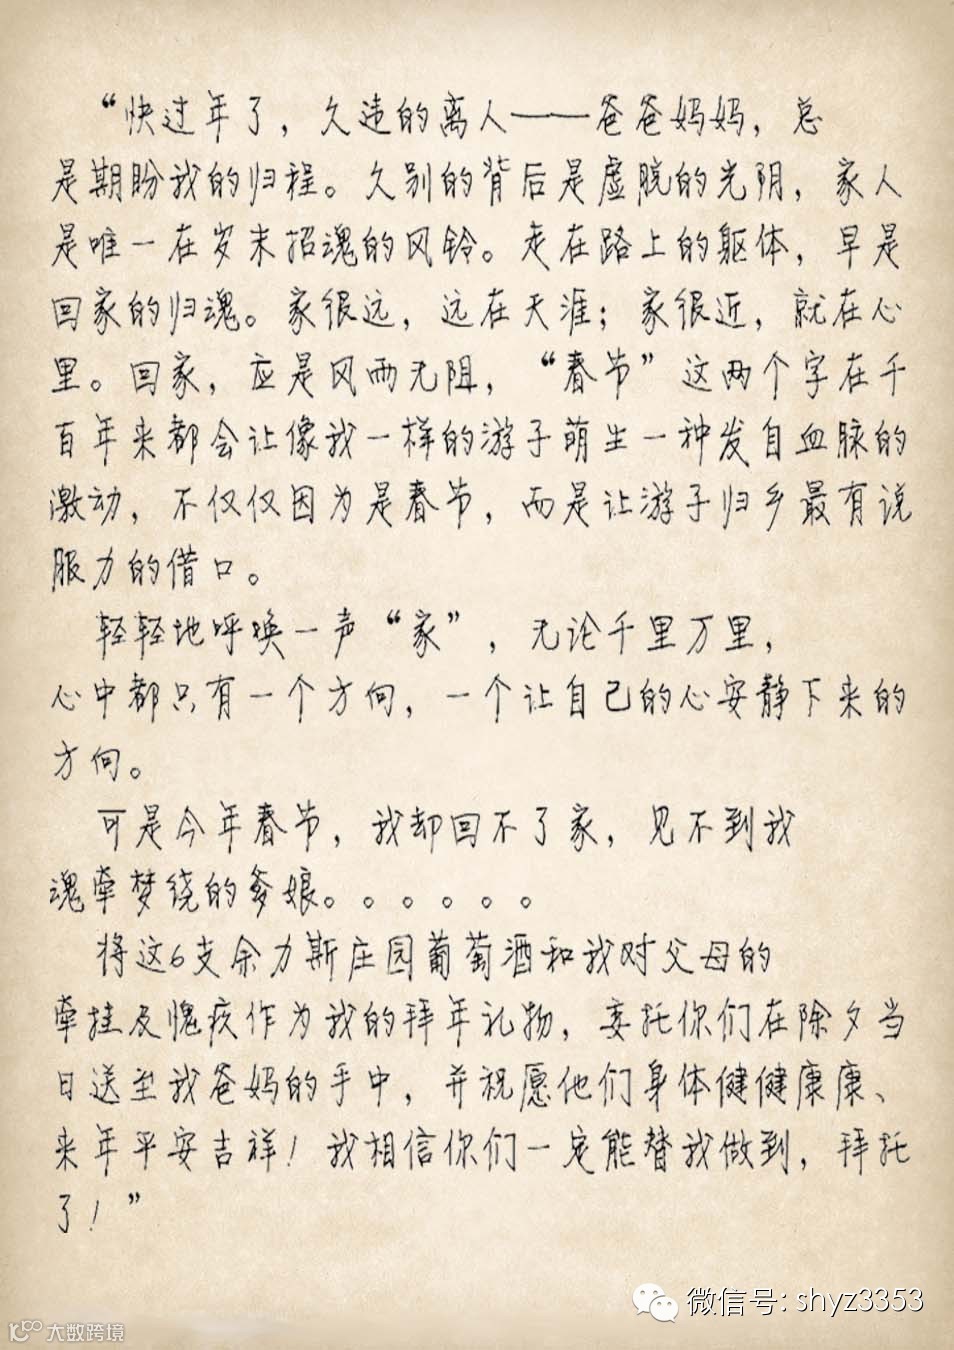 “快过年了，久违的离人——爸爸妈妈，总
是期盼我的归程。久别的背后是虚脱的光阴，家人
是唯一在岁末招魂的风铃。走在路上的躯体，早是
回家的归魂。家很远，远在天涯；家很近，就在心
里。回家，应是风雨无阻，“春节”这两个字在千
百年来都会让像我一样的游子萌生一种发自血脉的
激动，不仅仅因为是春节，而是让游子归乡最有说
服力的借口。
轻轻地呼唤一声“家”，无论千里万里，
心中都只有一个方向，一个让自己的心安静下来的
方向。
可是今年春节，我却回不了家，见不到我
魂牵梦绕的爹娘。。。。。。
将这6支余力斯庄园葡萄酒和我对父母的
牵挂及愧疚作为我的拜年礼物，委托你们在除夕当
日送至我爸妈的手中，并祝愿他们身体健健康康、
来年平安吉祥！我相信你们一定能替我做到，拜托
了！”
微信号: shyz3353
大数跨境